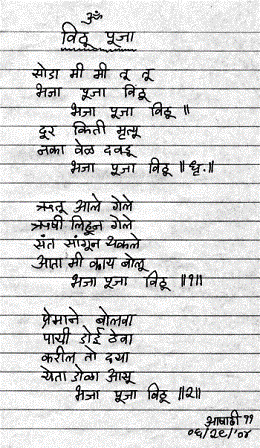 ॐ
विठू पूजा
सोडा मी मी तू तू
भजा पूजा विठू
भजा पूजा विठू ॥
दूर किती मृत्यू
नका वेळ दवडू
भजा पूजा विठू ॥ धृ. ॥
ऋतू आले गेले
ऋषी लिहून गेले
संत सांगून थकले
आता मी काय बोलू
भजा पूजा विठू ॥१॥
प्रेमाने बोलवा
पायी डोई ठेवा
करील तो दया
येता डोळा आसू
भजा पूजा विठू ॥२॥
आषाढी ११
०६/२९/'०४